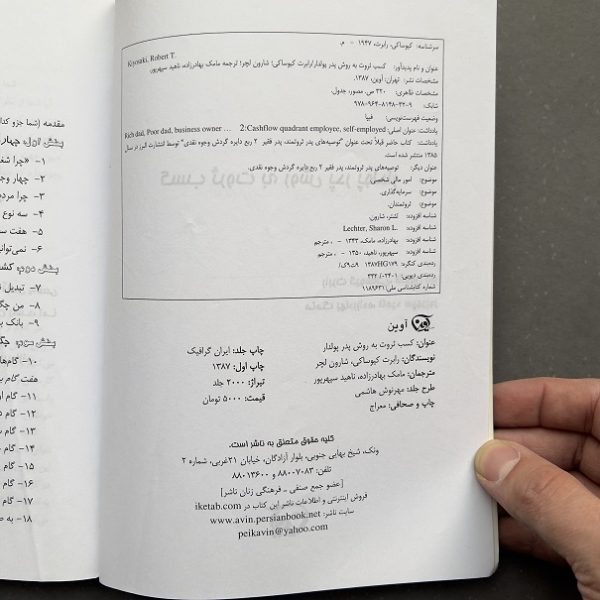 سرشناسه: کیوساکی، رابرت، ۱۹۴۷ - م.
Kiyosaki, Robert T.
عنوان و نام پدیدآور: کسب ثروت به روش پدر پولدار/رابرت کیوساکی؛ شارون لچر؛ ترجمه مامک بهادرزاده، ناهید سپهرپور.
مشخصات نشر: تهران: آوین، ۱۳۸۷.
مشخصات ظاهری: ۳۲۰ ص. مصور، جدول.
شابک: ۹۷۸-۹۶۴-۸۱۴۸-۳۲-۹
وضعیت فهرست‌نویسی: فیپا
یادداشت: عنوان اصلی: Rich dad, Poor dad, business owner ... 2:Cashflow quadrant employee, self-employed
یادداشت: کتاب حاضر قبلاً تحت عنوان "توصیه‌های پدر ثروتمند، پدر فقیر ۲ ربع دایره گردش وجوه نقدی" توسط انتشارات البرز در سال
۱۳۸۵ منتشر شده است.
عنوان دیگر: توصیه‌های پدر ثروتمند، پدر فقیر ۲ ربع دایره گردش وجوه نقدی.
موضوع: امور مالی شخصی.
موضوع: سرمایه‌گذاری.
موضوع: ثروتمندان.
شناسه افزوده: لکتر، شارون.
شناسه افزوده: Lechter, Sharon L.
شناسه افزوده: بهادرزاده، مامک، ۱۳۴۳ - ، مترجم
شناسه افزوده: سپهرپور، ناهید، ۱۳۵۰ - ، مترجم
رده‌بندی کنگره: ۱۳۸۷HG۱۷۹
رده‌بندی دیویی: ۳۳۲/۰۲۴۰۱
شماره کتابشناسی ملی: ۱۱۸۹۶۳۱
آوین
عنوان: کسب ثروت به روش پدر پولدار
نویسندگان: رابرت کیوساکی، شارون لچر
مترجمان: مامک بهادرزاده، ناهید سپهرپور
طرح جلد: مهرنوش هاشمی
چاپ و صحافی: معراج
چاپ جلد: ایران گرافیک
چاپ اول: ۱۳۸۷
تیراژ: ۲۰۰۰ جلد
قیمت: ۵۰۰۰ تومان
کلیه حقوق متعلق به ناشر است.
ونک، شیخ بهایی جنوبی، بلوار آزادگان، خیابان ۲۱غربی، شماره ۲
تلفن: ۸۸۰۰۷۰۸۳ و ۸۸۰۱۳۶۰۰
[عضو جمع صنفی ـ فرهنگی زنان ناشر]
فروش اینترنتی و اطلاعات ناشر این کتاب در iketab.com
سایت ناشر: www.avin.persianbook.net
peikavin@yahoo.com
مقدمه (شما جزو کدا
بخش اول: چهار
۱- «چرا شغ
۲- چهار وج
۳- چرا مردم
۴- سه نوع
۵- هفت سط
۶- نمی‌توانی
بخش دوم:
۷- تبدیل
۸- من چگ
۹- بانک ب
بخش سوم: چگ
۱۰- گام‌ها
هفت گام ب
۱۱- گام او
۱۲- گام د
۱۳- گام س
۱۴- گام
۱۵- گام
۱۶- گام
۱۷- گام
۱۸- به ط